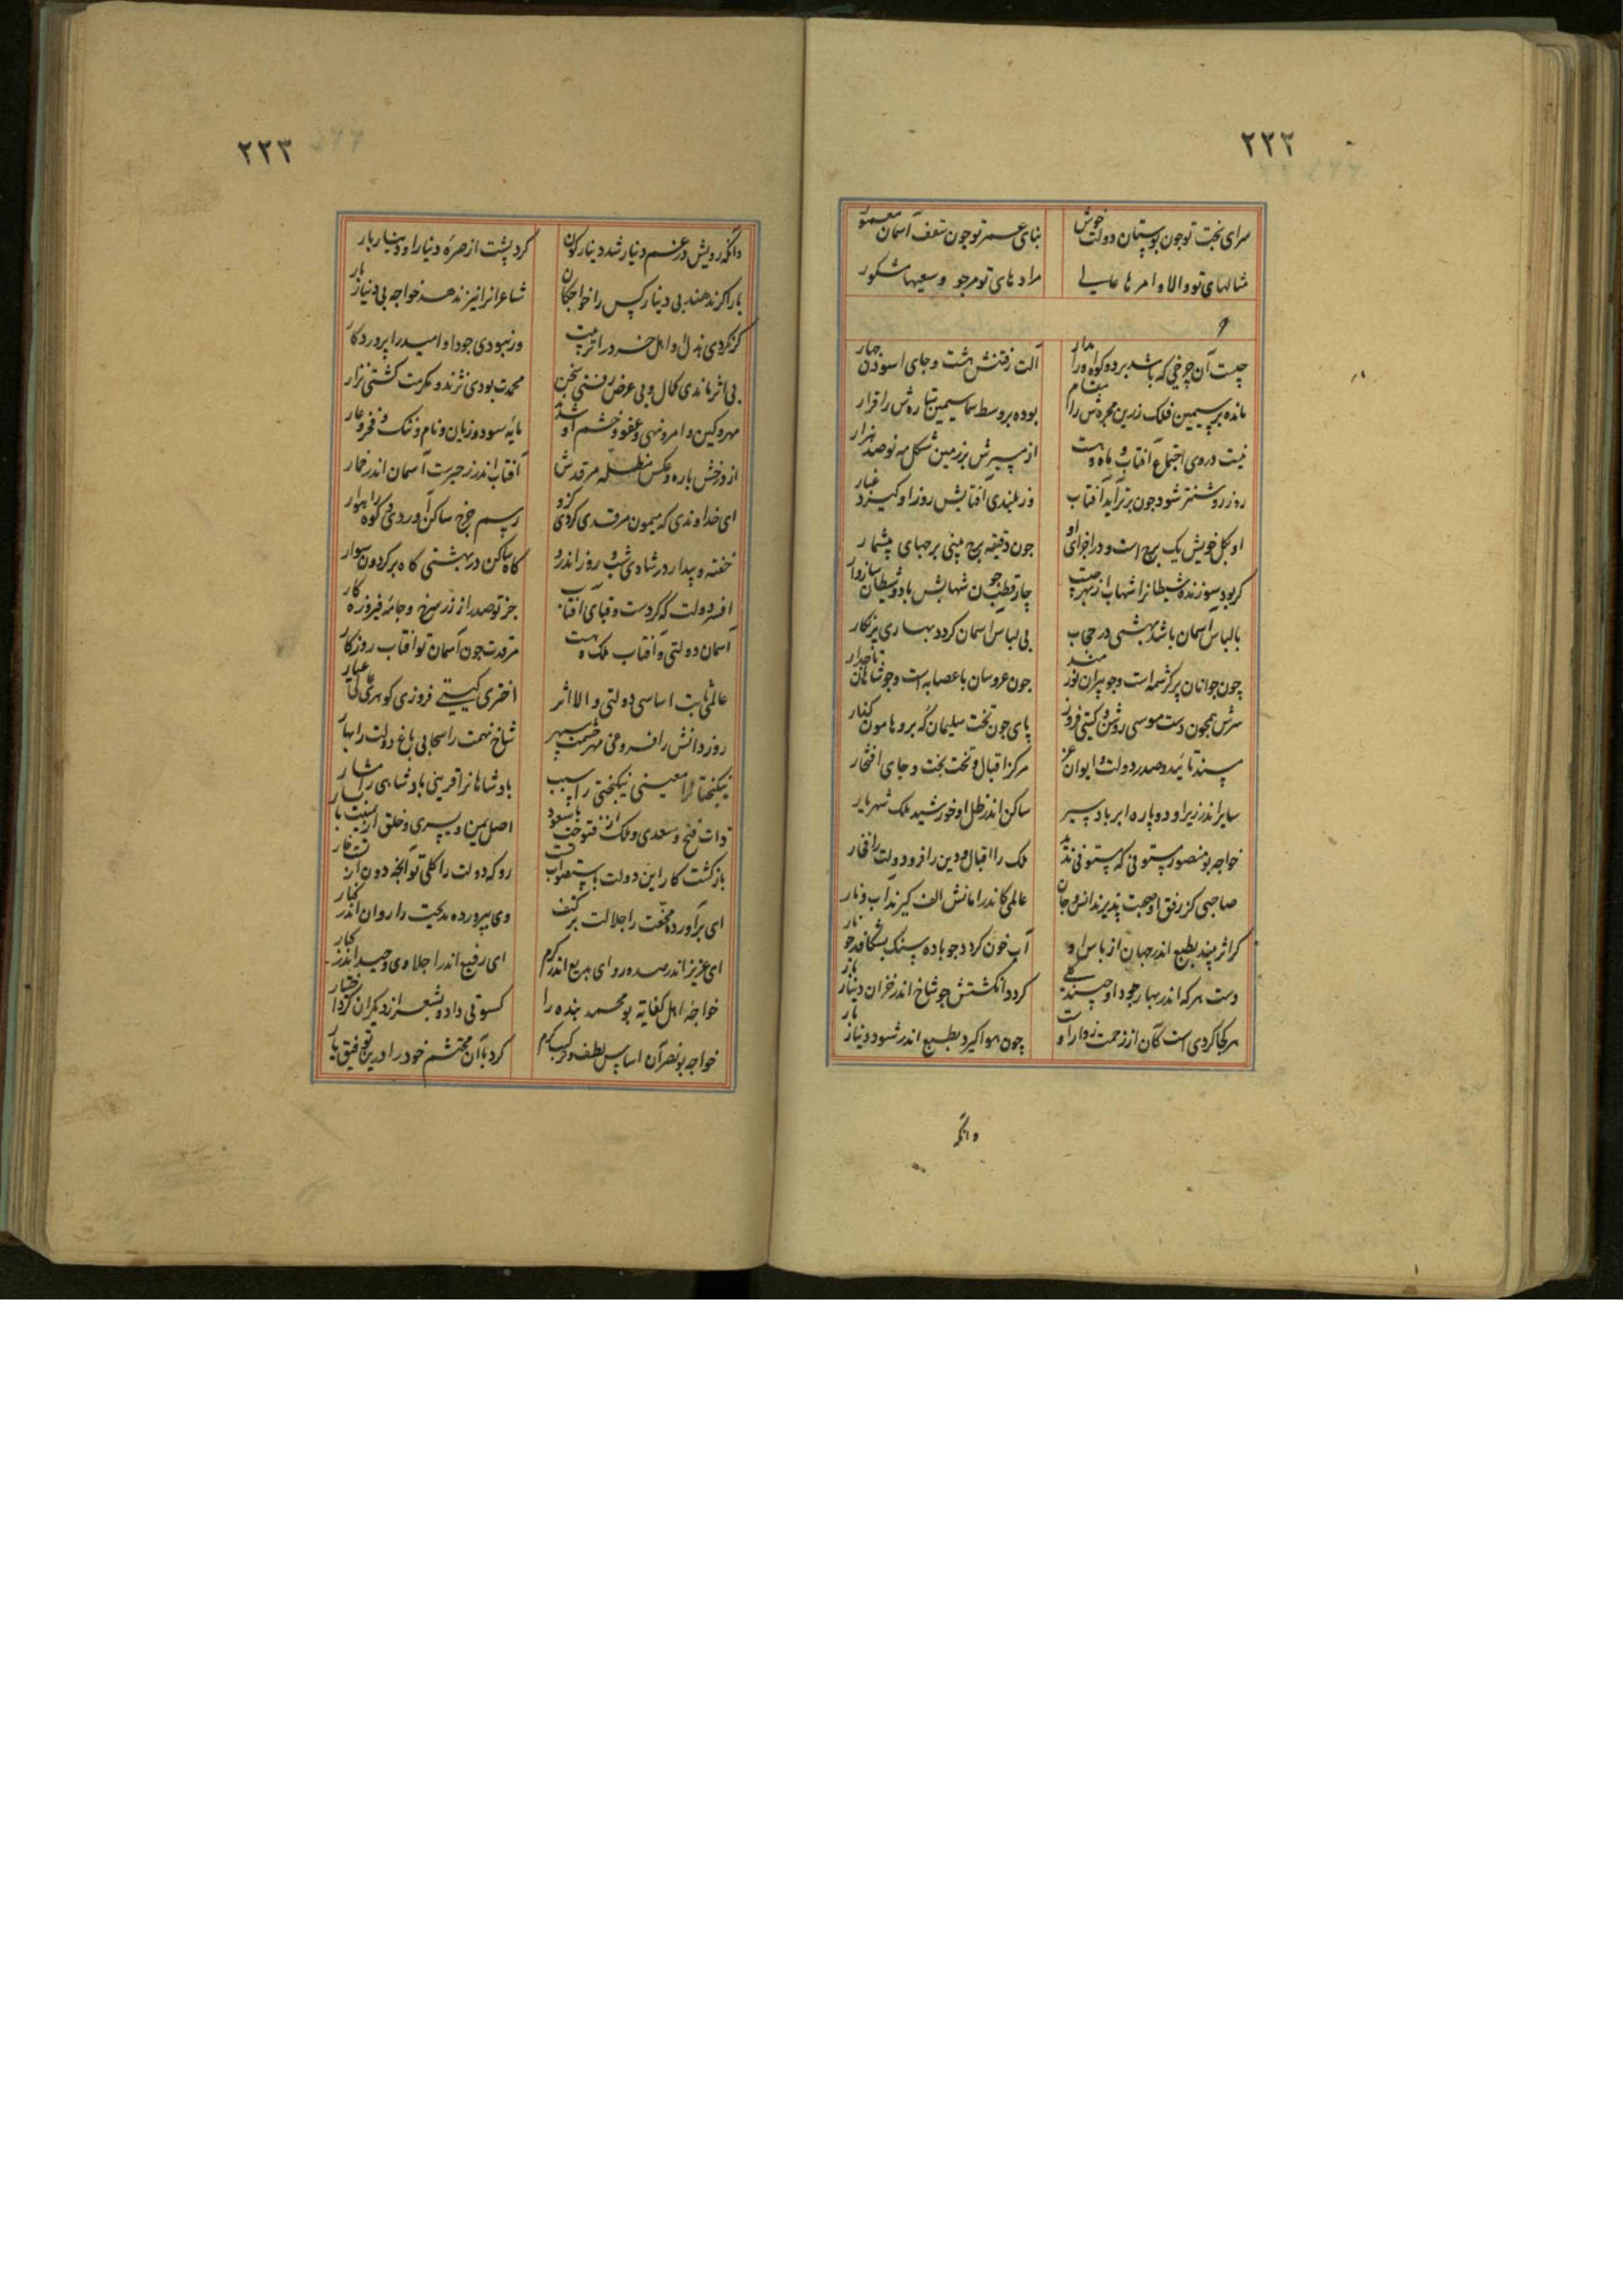 ۲۲۲
سرای بخت تو چون بوستان دولت خوش بنای عمر تو چون سقف آسمان معمور
مثالهای تو والا و امرها عالی مرادهای تو مرجو و سعیها مشکور
و
چیست آن چرخی که باشد بر دو کوه او را مدار آلت رفتنش هشت و جای اسودن چهار
مانده بر سیمین فلک زرین مجره‌ش را مقام بوده بر وسط سما سیمین ستاره‌ش را قرار
نیست در وی اجتماع آفتاب و ماه و هست از سپرش بر زمین شکل مه نو صد هزار
روز روشنتر شود چون برتر آید آفتاب وز بلندی آفتابش روز را و کیرد غبار
او بکل خویش یک برج است و در اجزای او چون دقیقه برج بینی برجهای بیشمار
کر بود سوزنده شیطانرا شهاب از بهر چیست چار قطب چون شهابش با دو شیطان سازوار
با لباس آسمان باشد بهشتی در حجاب بی لباس آسمان کردد بهاری پرنکار
چون جوانان پر کرشمه است و چو پیران نور مند چون عروسان با عصابه است و چو شاهان تاجدار
سرش همچون دست موسی روشن و کیتی فروز پای چون تخت سلیمان که بر و هامون کنار
مسند تائید و صدر دولت و ایوان عز مرکز اقبال و تخت بخت و جای افتخار
سایر اندر زیر او دو پاره ابر باد سیر ساکن اندر ظل او خورشید ملک شهریار
خواجه بو منصور مستوفی که مستوفی ندید ملک را اقبال و دین را فر و دولت را فخار
صاحبی کز رفق او صحبت پذیرند انس و جان عالمی کاندر امانش الف کیرند آب و نار
کر اثر بیند بطبع اندر جهان از باس او آب خون کردد چو باده سنک بشکافد چو نار
دست هر که اندر بهار جود او جنبد کردد انکشتش چو شاخ اندر خزان دینار بار
هر کجا کردی است کان از زحمت زوار اوست چون هوا کیرد بطبع اندر شود دینار بار
وانکه
۲۲۳
وانکه رویش در غم دینار شد دینار کون کرد پشت از بهره دینار او دینار بار
بار اکر ندهند بی دینار کس را خواجکان شاعرانرا نیز ندهد خواجه بی دینار بار
کر نکردی بذل او اهل خرد را تربیت ور نبودی جود او امید را پروردکار
بی اثر ماندی کمال و بی عرض رفتی سخن محمدت بودی نژند و مکرمت کشتی نزار
مهر و کین و امر و نهی و عفو و خشم او شد مایه سود و زیان و نام و ننک و فخر و عار
از درخش باره و عکس مظله مرقدش آفتاب اندر حیرت آسمان اندر خمار
ای خداوندی که میمون مرقدی کردی کزو رسم چرخ ساکن آوردی و کوه راهوار
خفته و بیدار در شادی شب و روز اندرو کاه ساکن در بهشتی کاه بر کردون سوار
افسر دولت که کردست و قبای آفتاب جز تو صدر از زر سرخ و جامه فیروزه کار
آسمان دولتی و آفتاب ملک هست مرقدت چون آسمان تو آفتاب روزکار
عالمی ثابت اساسی دولتی والا اثر اختری کیتی فروزی کوهری عالی عیار
روز دانش را فروغی مهر حشمت را سپهر شاخ نهمت را سحابی باغ دولت را بهار
نیکبختانرا معینی نیکبختی را سبب پادشاهانرا قرینی پادشاهی را مشار
ذات فتح و سعدی و ملک از تو فتوحت با سعود اصل یمن و یسری و خلق از یمینت با یسار
بازکشت کار این دولت باستصواب تست رو که دولت را کلی تو آنچه دون
ای برآورده محنت را جلالت بر کتف وی بپرورده مدیحت را روان اندر کنار
ای عزیز اندر صدور و ای بدیع اندر کرم ای رفیع اندر اجلا وی وحید اندر کبار
خواجه اهل کفایه بو محمد بنده را کسوتی داد و بشعر از دیکران کرد اختیار
خواجه بونصر آن اساس لطف و ترکیب کرم کرد با آن محتشم خود را درین توفیق یار